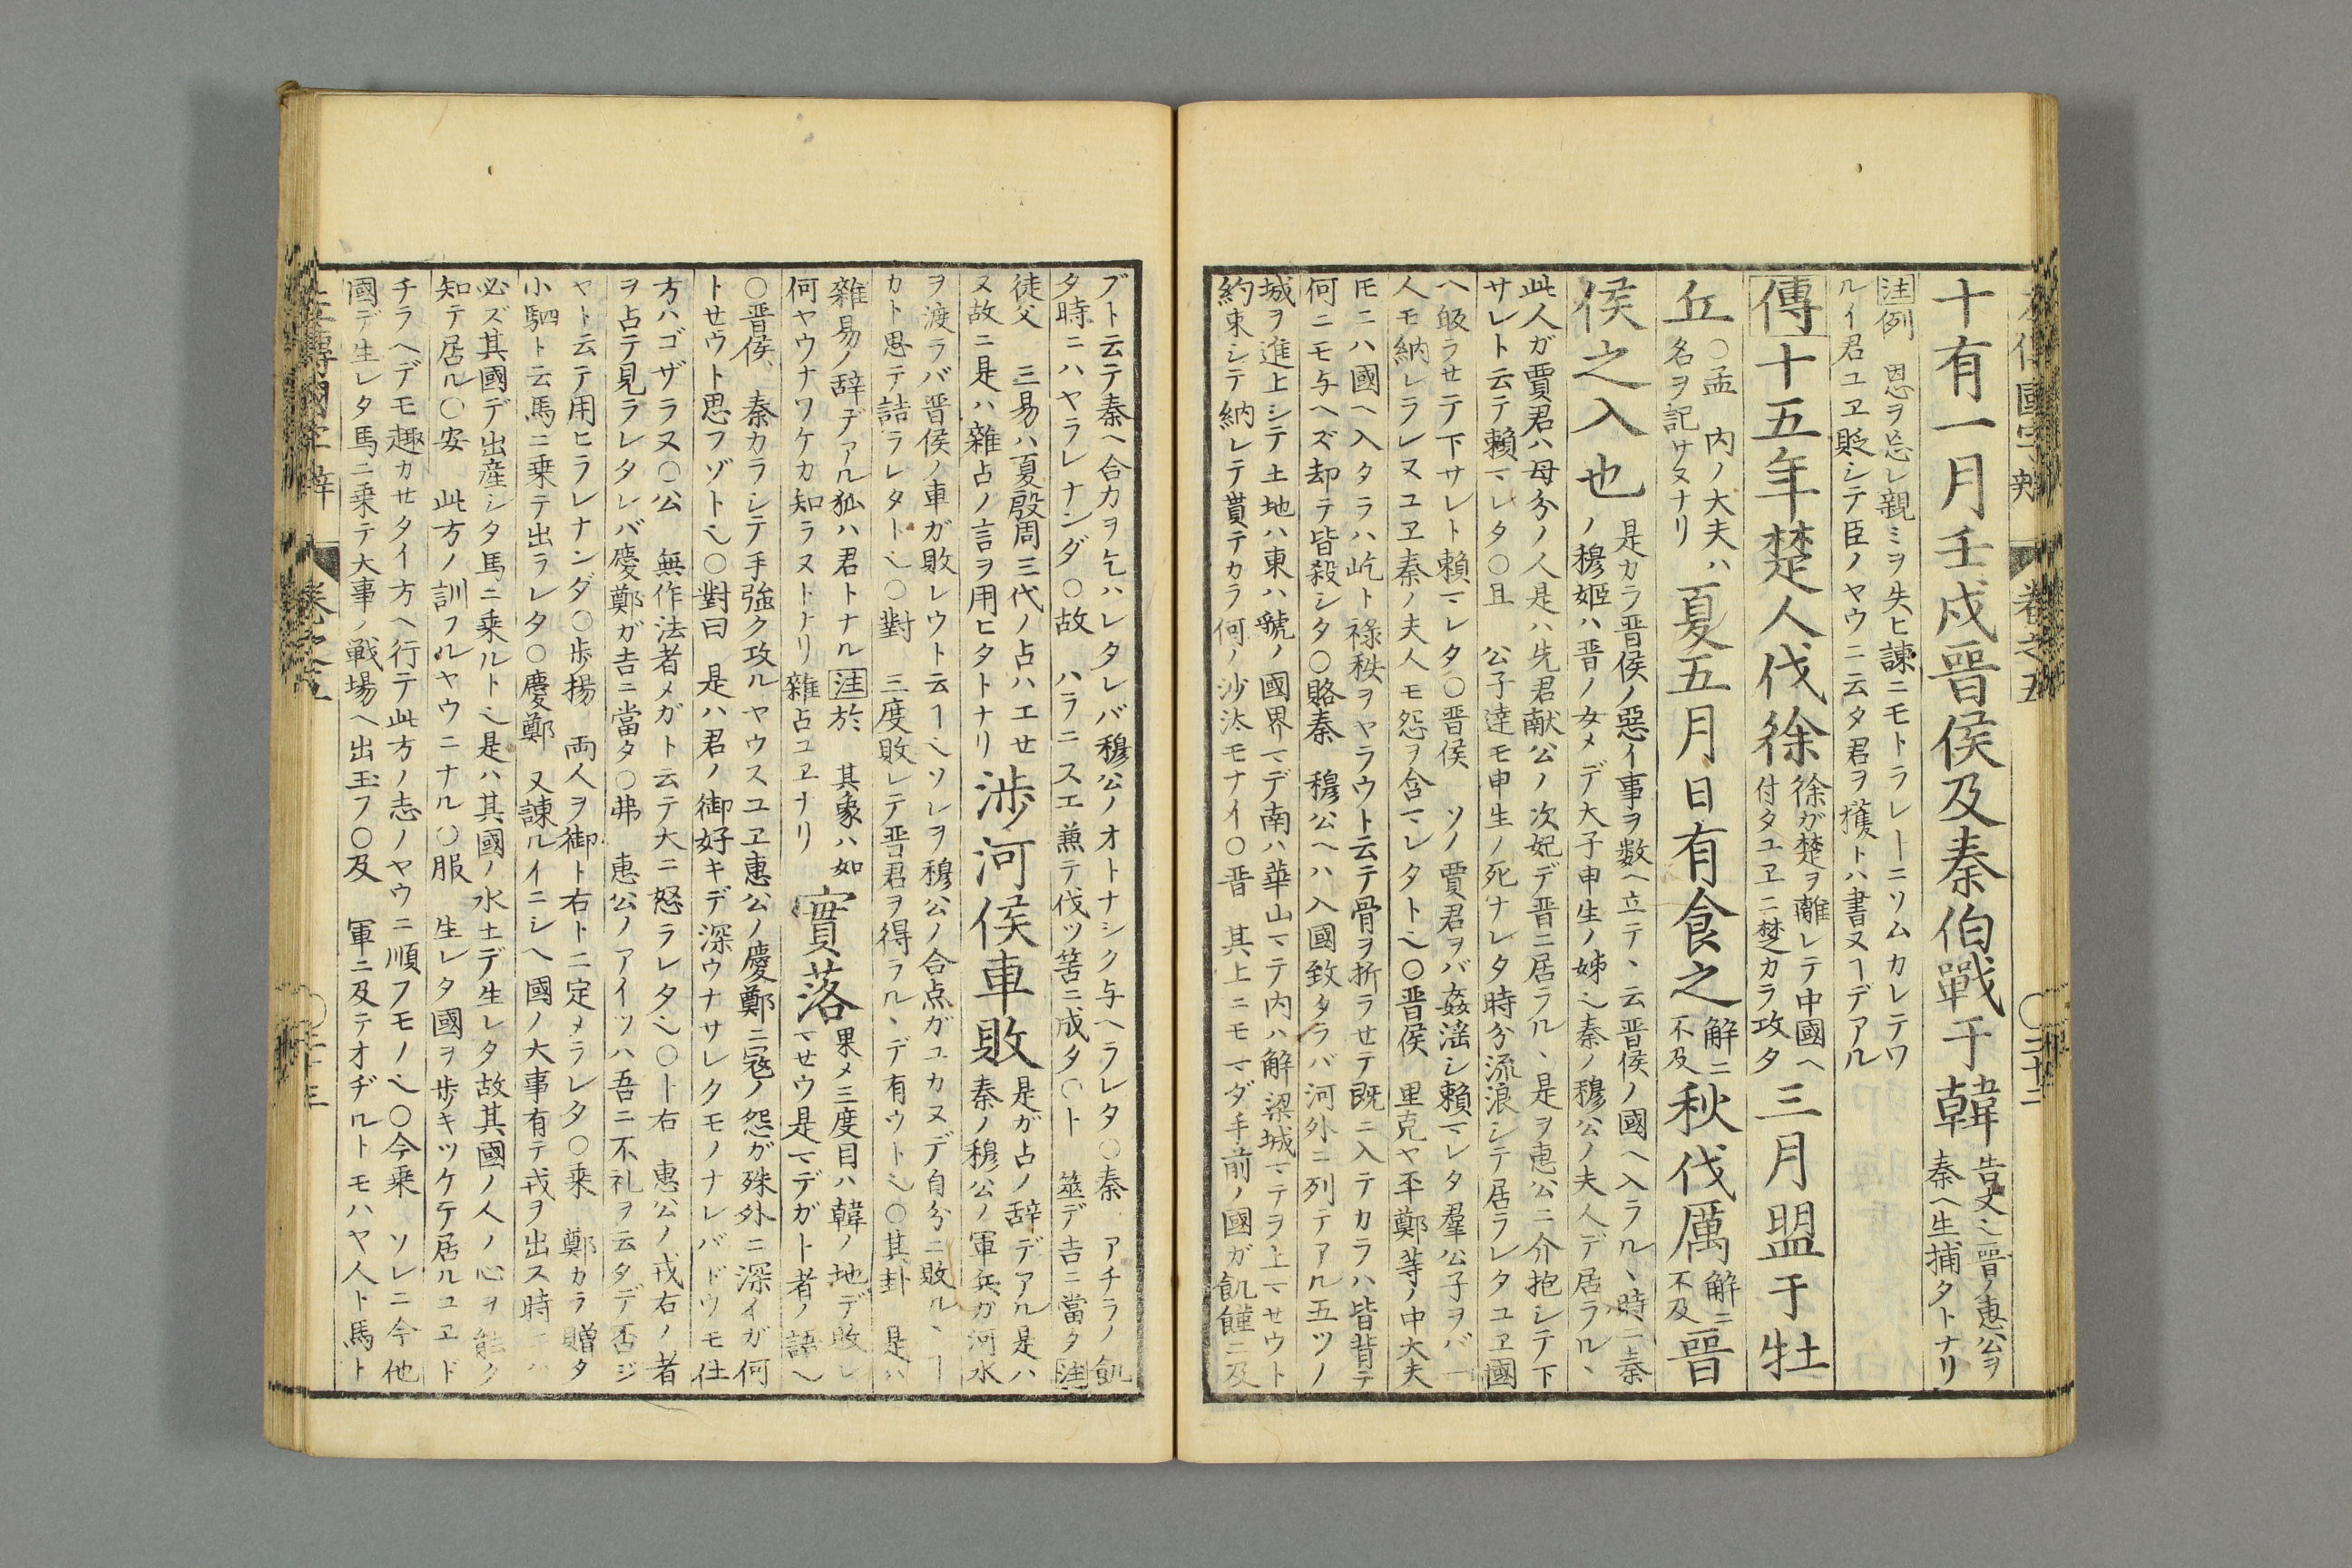 十有一月壬戌晋侯及秦伯戰于韓 告文ヘ晋ノ惠公ヲ
秦ヘ生捕タトナリ
注例 恩ヲ忘レ親ミヲ失ヒ諫ニモトラレヿニソムカレテワ
ルイ君ユヱ貶シテ臣ノヤウニ云タ君ヲ獲トハ書ヌヿデアル
傳十五年楚人伐徐 徐ガ楚ヲ離レテ中國ヘ
付タユヱニ楚カラ攻タ 三月盟于牡
丘 ○孟 内ノ大夫ハ
名ヲ記サヌナリ 夏五月日有食之 解ニ
不及 秋伐厲 解ニ
不及 晉
侯之入也 是カラ晋侯ノ惡イ事ヲ数ヘ立テヽ云晋侯ノ國ヘ入ラルヽ時ニ秦
ノ穆姬ハ晋ノ女メデ大子申生ノ姊ヘ秦ノ穆公ノ夫人デ居ラルヽ
此人ガ賈君ハ母分ノ人是ハ先君献公ノ次妃デ晋ニ居ラルヽ是ヲ惠公ニ介抱シテ下
サレト云テ賴マレタ○且 公子達モ申生ノ死ナレタ時分流浪シテ居ラレタユヱ國
ヘ皈ラセテ下サレト賴マレタ○晋侯 ソノ賈君ヲバ姦滛シ賴マレタ羣公子ヲバ一
人モ納レラレヌユヱ秦ノ夫人モ怨ヲ含マレタトヘ○晋侯 里克ヤ丕鄭等ノ中大夫
𪜈ニハ國ヘ入タラハ屹ト祿秩ヲヤラウト云テ骨ヲ折ラセテ既ニ入テカラハ皆背テ
何ニモ与ヘズ却テ皆殺シタ○賂秦 穆公ヘハ入國致タラバ河外ニ列テアル五ツノ
城ヲ進上シテ土地ハ東ハ虢ノ國界マデ南ハ華山マテ内ハ解梁城マテヲ上マセウト
約束シテ納レテ貰テカラ何ノ沙汰モナイ○晋 其上ニモマダ手前ノ國ガ飢饉ニ及
ブト云テ秦ヘ合力ヲ乞ハレタレバ穆公ノオトナシク与ヘラレタ○秦 アチラノ飢
タ時ニハヤラレナンダ○故 ハラニスエ兼テ伐ツ筈ニ成タ○卜 筮デ吉ニ當タ注
徒父 三易ハ夏殷周三代ノ占ハエセ
ヌ故ニ是ハ雜占ノ言ヲ用ヒタトナリ 渉河侯車敗 是ガ占ノ辞デアル是ハ
秦ノ穆公ノ軍兵ガ河水
ヲ渡ラバ晋侯ノ車ガ敗レウト云ヿヘソレヲ穆公ノ合点ガユカヌデ自分ニ敗ルヽヿ
カト思テ詰ラレタトヘ○對 三度敗レテ晋君ヲ得ラルヽデ有ウトヘ○其卦 是ハ
雜易ノ辞デアル狐ハ君トナル注於 其象ハ如
何ヤウナワケカ知ラヌトナリ雜占ユヱナリ 實落 果メ三度目ハ韓ノ地デ敗レ
マセウ是マデガト者ノ語ヘ
○晋侯 秦カラシテ手強ク攻ルヤウスユヱ惠公ノ慶鄭ニ冦ノ怨ガ殊外ニ深イガ何
トセウト思フゾトヘ○對曰 是ハ君ノ御好キデ深ウナサレクモノナレバドウモ仕
方ハゴザラヌ○公 無作法者メガト云テ大ニ怒ラレタヘ○卜右 惠公ノ戎右ノ者
ヲ占テ見ラレタレバ慶鄭ガ吉ニ當タ○弗 惠公ノアイツハ吾ニ不礼ヲ云タデ否ジ
ヤト云テ用ヒラレナンダ○歩揚 両人ヲ御ト右トニ定メラレタ○乘 鄭カラ贈タ
小駟ト云馬ニ乗テ出ラレタ○慶鄭 又諫ルイニシヘ國ノ大事有テ戎ヲ出ス時
必ズ其國デ出産シタ馬ニ乗ルトヘ是ハ其國ノ水土デ生レタ故其國ノ人ノ心ヲ能ク
知テ居ル○安 此方ノ訓フルヤウニナル○服 生レタ國ヲ歩キツケテ居ルユヱド
チラヘデモ趣カセタイ方ヘ行テ此方ノ志ノヤウニ順フモノヘ○今乗 ソレニ今他
國デ生レタ馬ニ乗テ大事ノ戦場ヘ出玉フ○及 軍ニ及テオヂルトモハヤ人ト馬ト